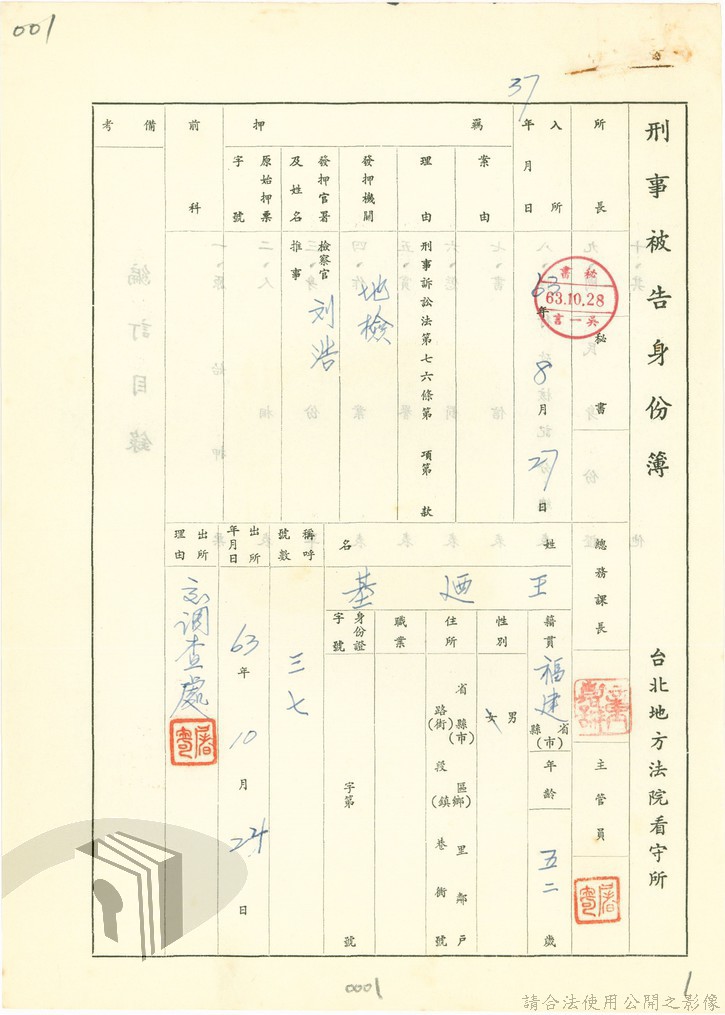 001
37
刑事被告身份簿
台北地方法院看守所
所長
秘書
總務課長
主管員
入所年月日
63年8月27日
秘書
63.10.28
吳一言
羈押
案由
理由
刑事訴訟法第七六條第 項第 款
發押機關
地檢
發押官署及姓名
檢察官
推事
刘浩
原始押票字號
前科
備考
姓名
王廼基
籍貫
福建
省
縣(市)
年齡
五二
歲
性別
男
女
住所
省縣(市)區鄉(鎮)里鄰戶
路(街)段巷衖號
職業
身份證字號
字第 號
稱呼號數
三七
出所年月日
63年10月24日
出所理由
調查處
編訂目錄
0001
1
請合法使用公開之影像